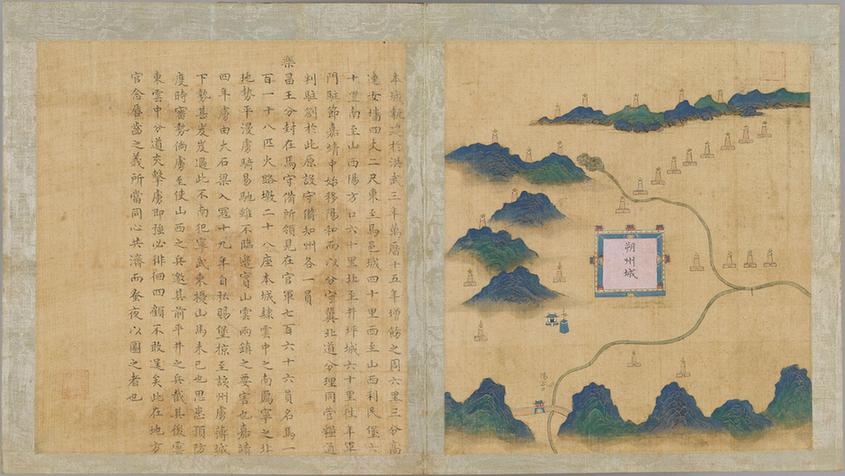 本城軌建於洪武三年萬曆十五年增餙之周六里三分高
連女墻四丈二尺東至馬邑城四十里西至山西利民堡六
十里南至山西陽方口六十里北至井坪城六十里往年軍
門駐節嘉靖中始移陽和而以分守冀北道分理同管糧通
判駐劄於此原設守備知州各一員
樂昌王分封在焉守備所領見在官軍七百六十六員名馬一
百一十八匹火路墩二十八座本城隸雲中之南鴈寧之北
地勢平漫虜騎易馳雖不臨邊實山雲兩鎮之要害也嘉靖
四年虜由大石梁入寇十九年自私賜堡掠至該州虜薄城
下勢甚岌岌過此不南犯寧武東擾山馬未已也思患預防
度時審勢倘虜至使山西之兵邀其前平井之兵截其後雲
東雲中分道夾擊虜即強必徘徊四顧不敢逞矣此在地方
官念脣齒之義所當同心共濟而蚤夜以圖之者也
朔州城
陽方口